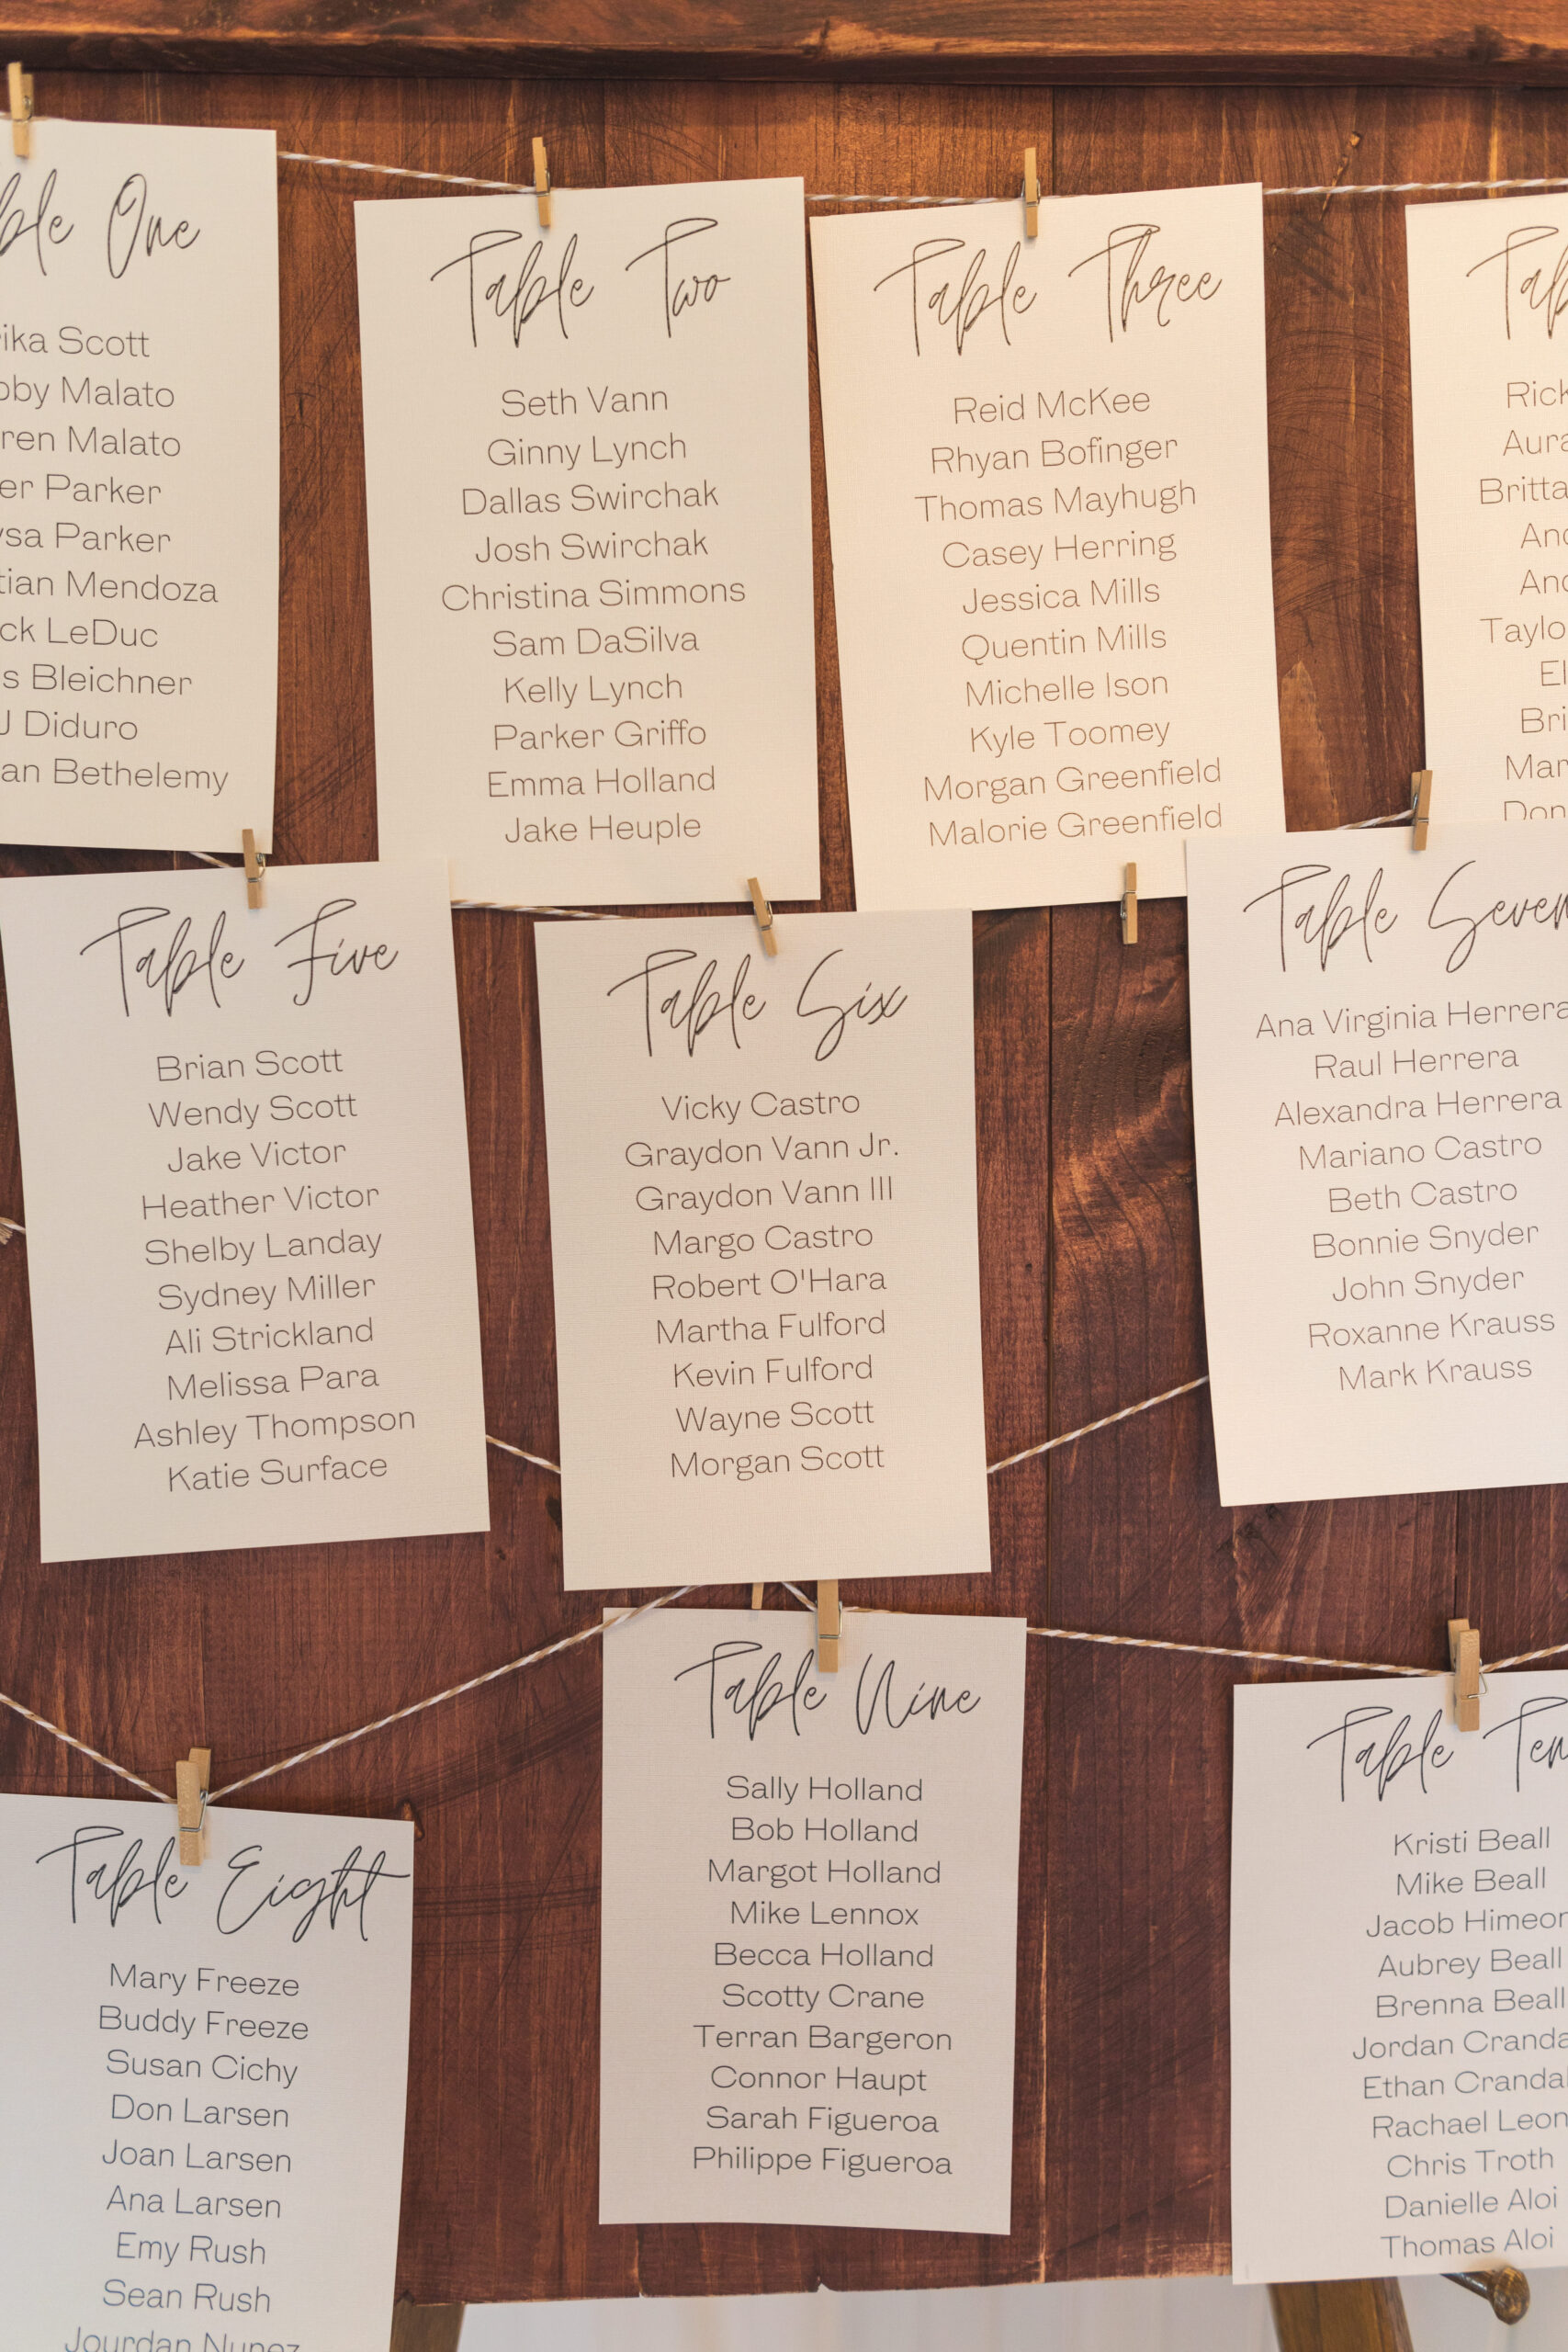 One
Scott
Malato
Malato
Parker
Parker
Mendoza
LeDuc
Bleichner
Diduro
Bethelemy
Table Two
Seth Vann
Ginny Lynch
Dallas Swirchak
Josh Swirchak
Christina Simmons
Sam DaSilva
Kelly Lynch
Parker Griffo
Emma Holland
Jake Heuple
Table Three
Reid McKee
Rhyan Bofinger
Thomas Mayhugh
Casey Herring
Jessica Mills
Quentin Mills
Michelle Ison
Kyle Toomey
Morgan Greenfield
Malorie Greenfield
Table Five
Brian Scott
Wendy Scott
Jake Victor
Heather Victor
Shelby Landay
Sydney Miller
Ali Strickland
Melissa Para
Ashley Thompson
Katie Surface
Table Six
Vicky Castro
Graydon Vann Jr.
Graydon Vann III
Margo Castro
Robert O'Hara
Martha Fulford
Kevin Fulford
Wayne Scott
Morgan Scott
Table Seven
Ana Virginia Herrera
Raul Herrera
Alexandra Herrera
Mariano Castro
Beth Castro
Bonnie Snyder
John Snyder
Roxanne Krauss
Mark Krauss
Table Eight
Mary Freeze
Buddy Freeze
Susan Cichy
Don Larsen
Joan Larsen
Ana Larsen
Emy Rush
Sean Rush
Jourdan Nunez
Table Nine
Sally Holland
Bob Holland
Margot Holland
Mike Lennox
Becca Holland
Scotty Crane
Terran Bargeron
Connor Haupt
Sarah Figueroa
Philippe Figueroa
Table Ten
Kristi Beall
Mike Beall
Jacob
Aubrey Beall
Brenna Beall
Jordan
Ethan
Rachael
Chris Troth
Danielle Aloi
Thomas Aloi